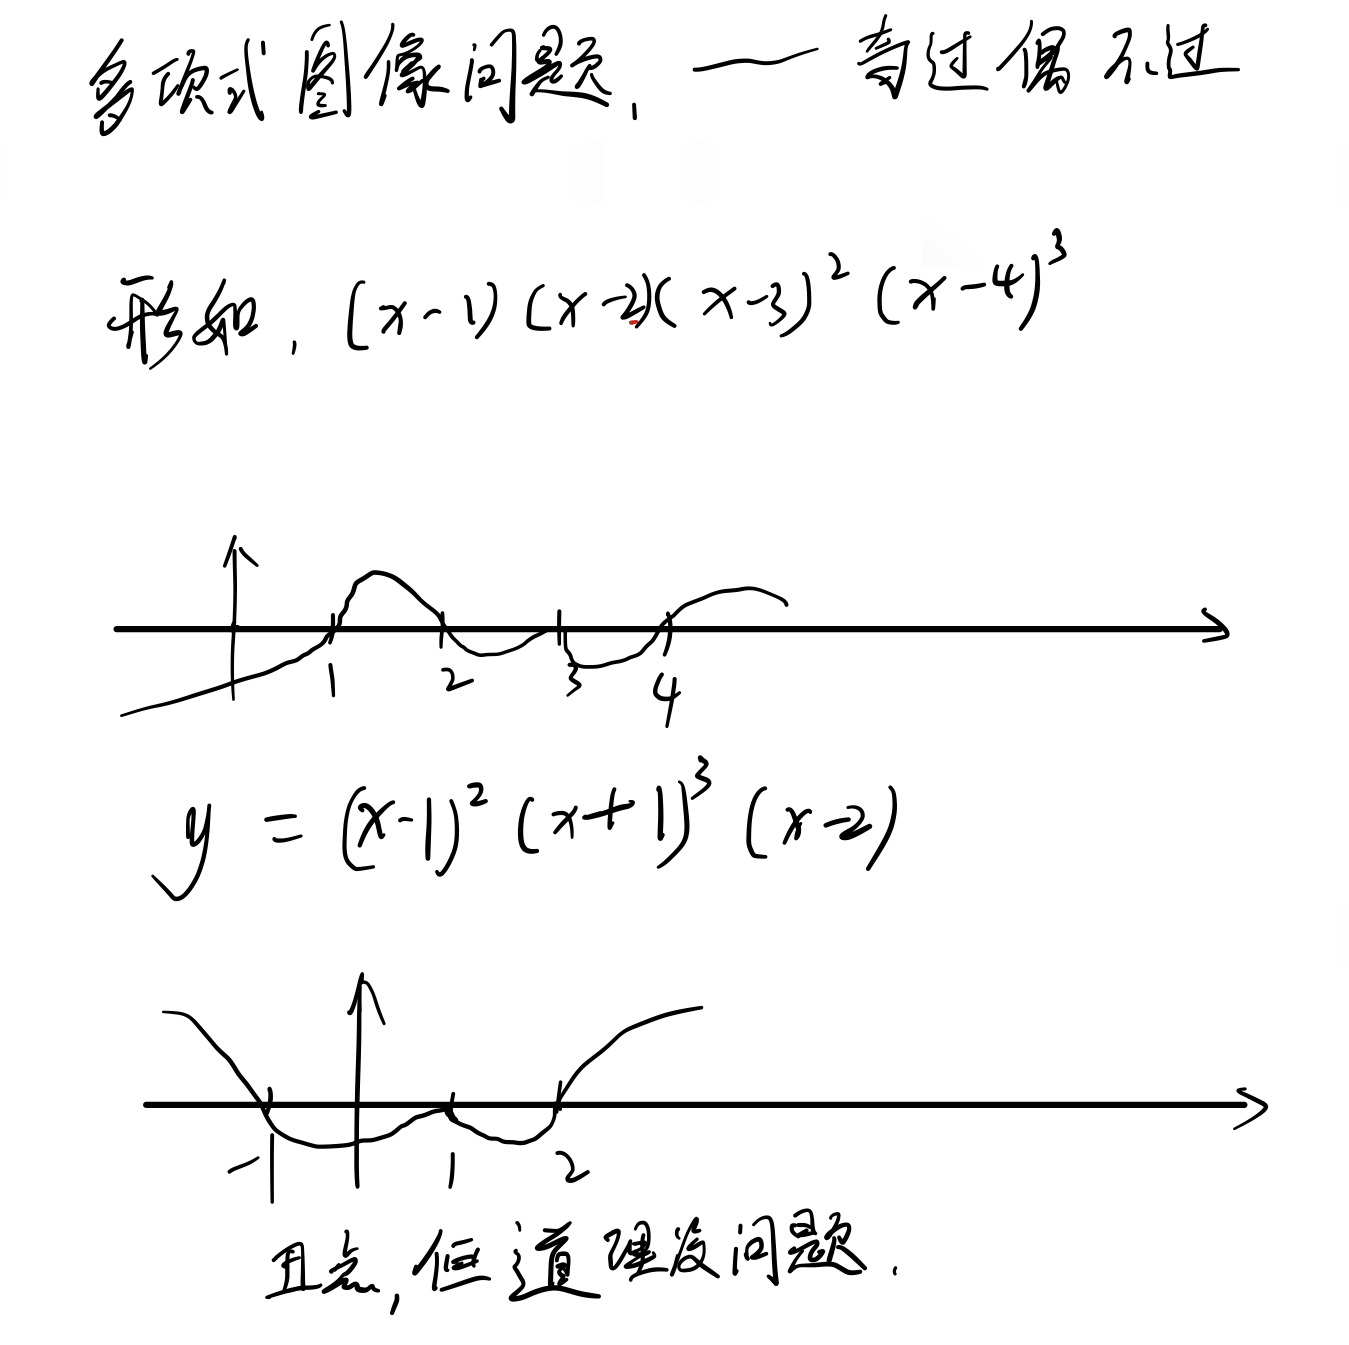 多项式图像问题, — 奇过偶不过
形如, (x-1)(x-2)(x-3)² (x-4)³
1 2 3 4
y = (x-1)² (x+1)³ (x-2)
-1 1 2
丑点, 但道理没问题.